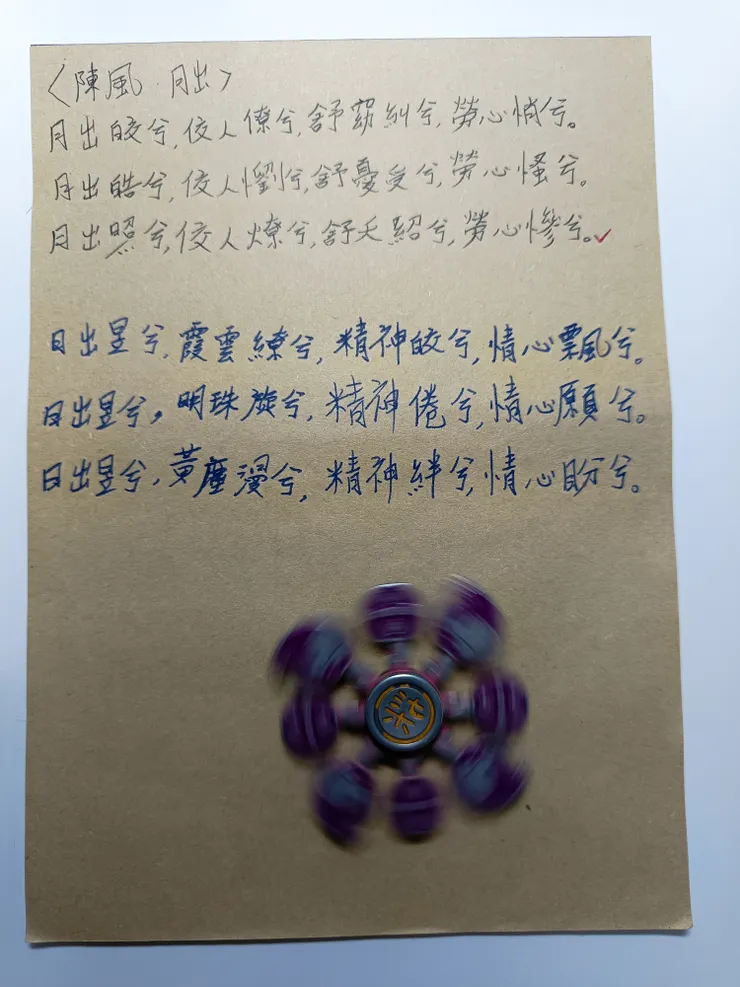 〈陳風·月出〉
月出皎兮,佼人僚兮,舒窈糾兮,勞心悄兮。
月出皓兮,佼人懰兮,舒憂受兮,勞心慅兮。
月出照兮,佼人燎兮,舒夭紹兮,勞心慘兮。
日出昱兮,霞雲繚兮,精神皎兮,情心飄兮。
日出昱兮,明珠旋兮,精神倦兮,情心願兮。
日出昱兮,黃塵漫兮,精神絆兮,情心盼兮。